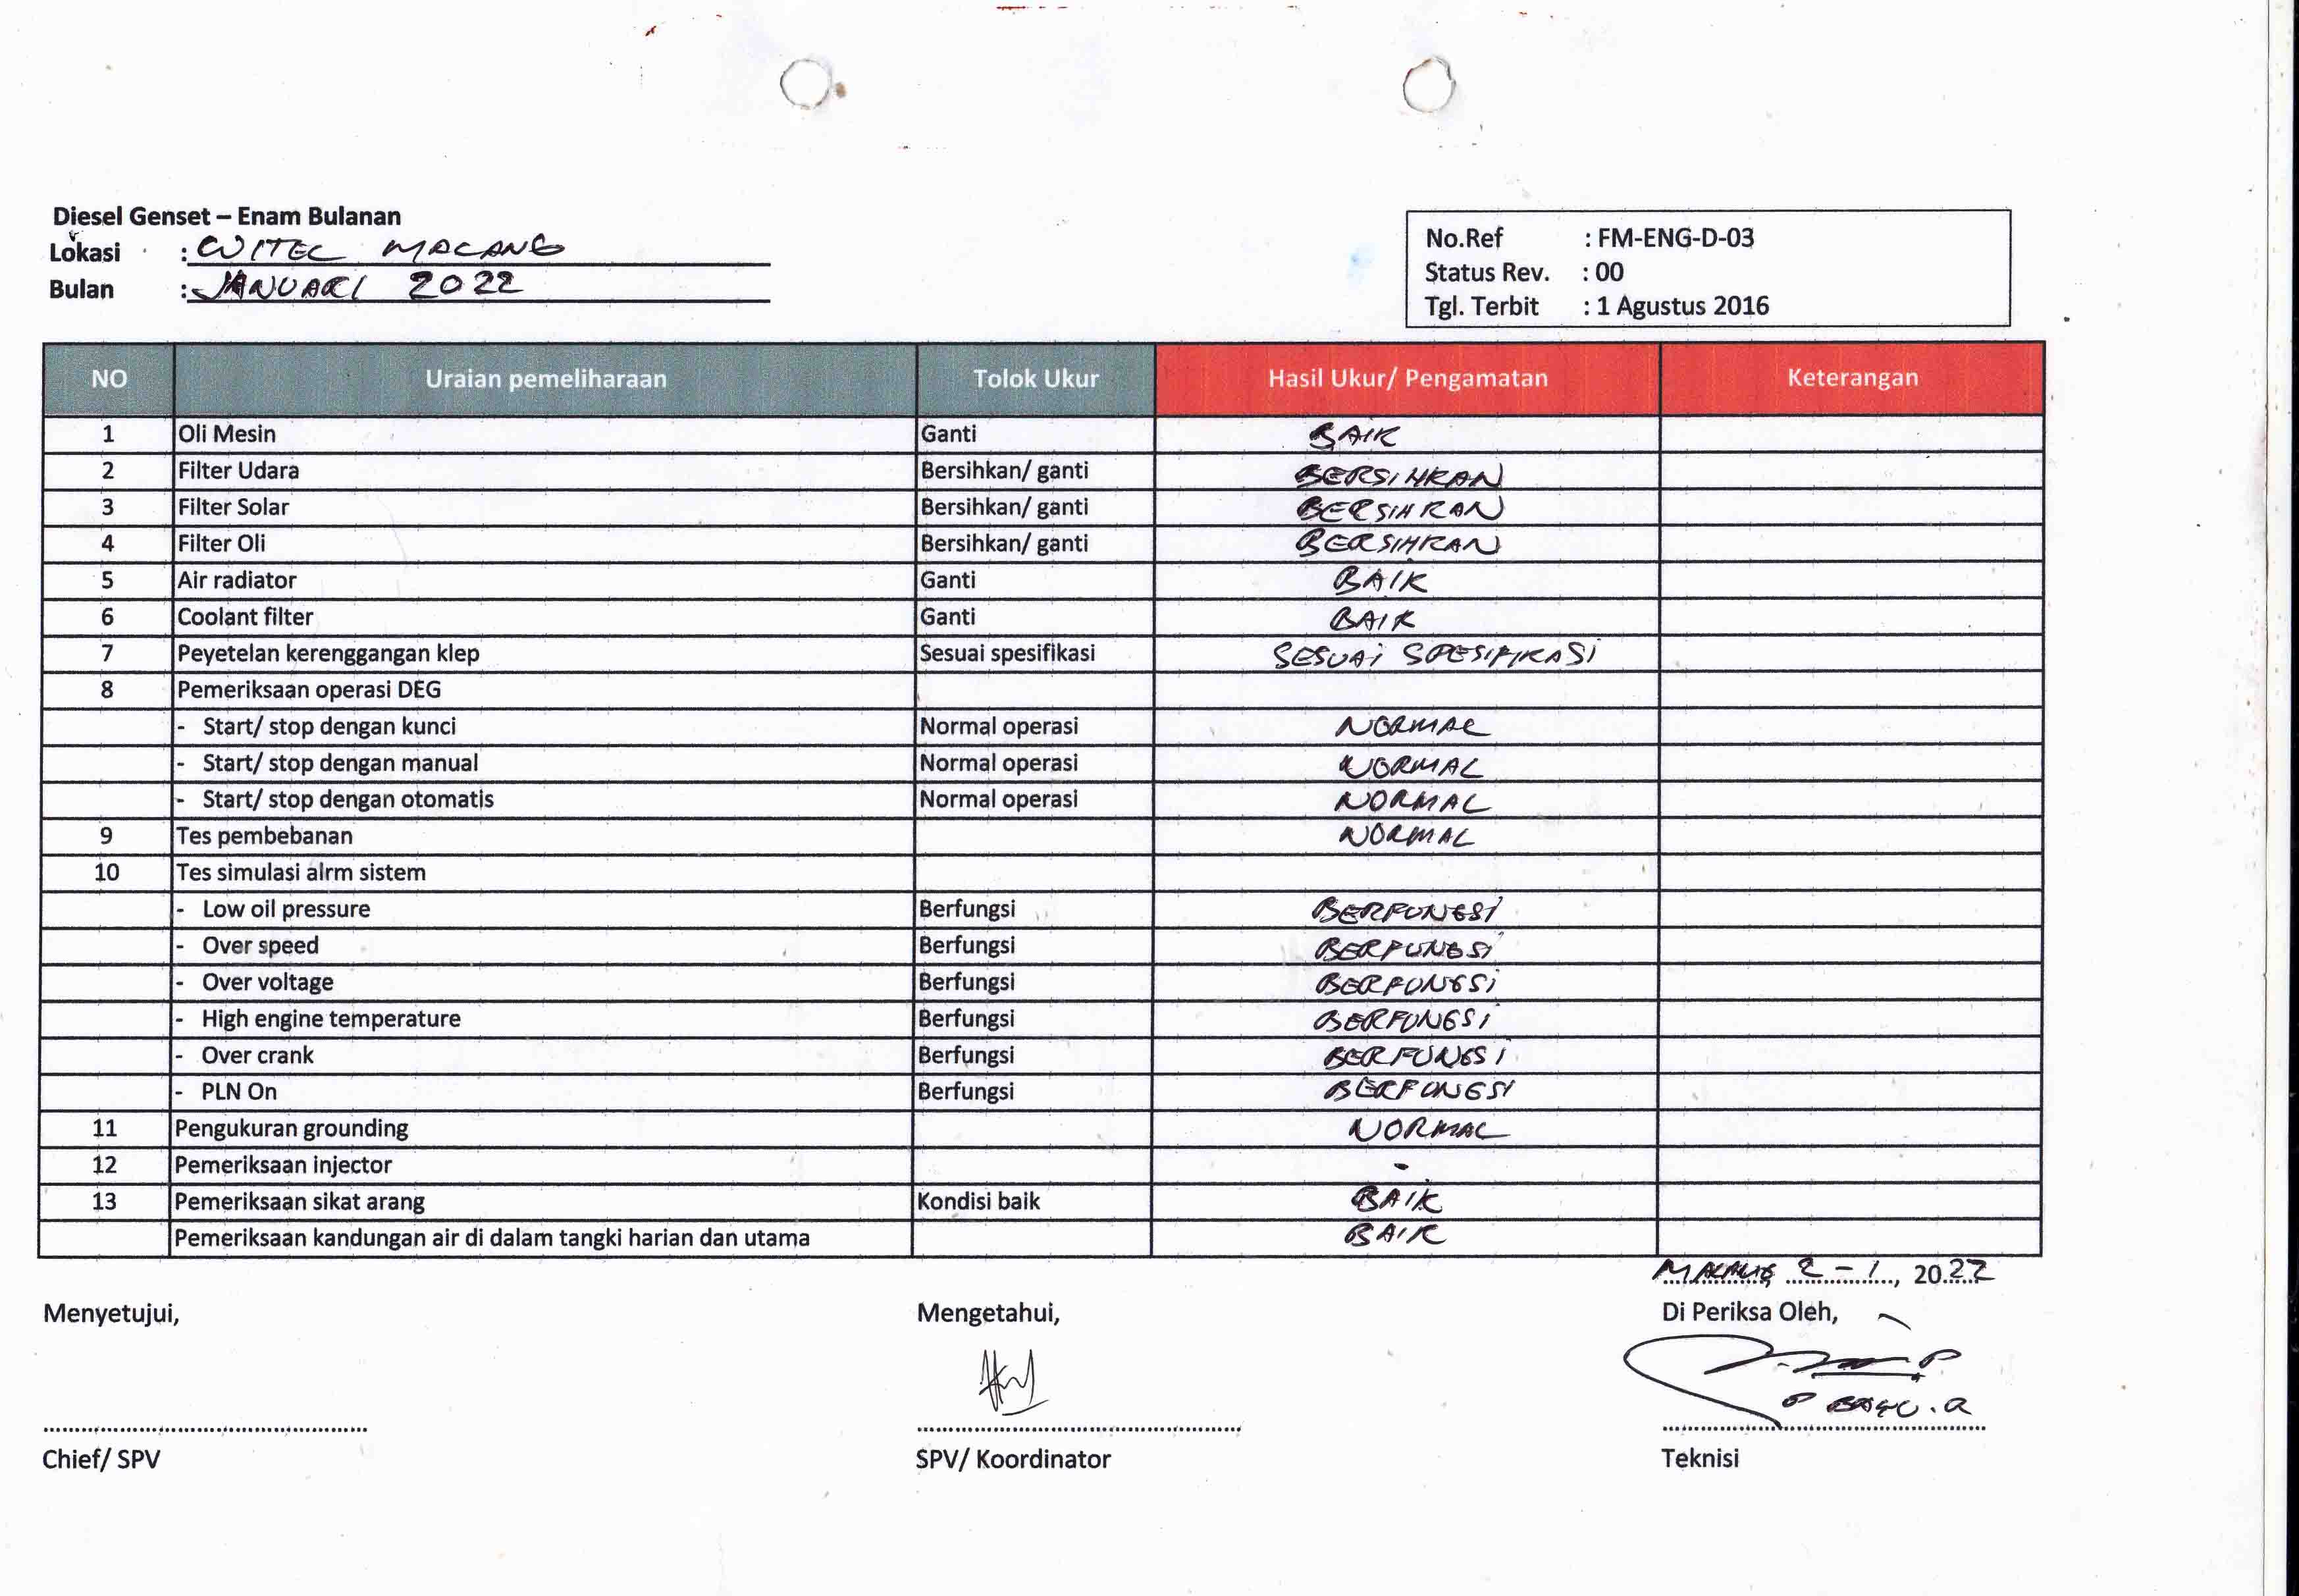 Diesel Genset – Enam Bulanan
Lokasi : WITEL MALANG
Bulan : JANUARI 2022
No.Ref : FM-ENG-D-03
Status Rev. : 00
Tgl. Terbit : 1 Agustus 2016
NO Uraian pemeliharaan Tolok Ukur Hasil Ukur/ Pengamatan Keterangan
1 Oli Mesin Ganti BAIK
2 Filter Udara Bersihkan/ ganti BERSIHKAN
3 Filter Solar Bersihkan/ ganti BERSIHKAN
4 Filter Oli Bersihkan/ ganti BERSIHKAN
5 Air radiator Ganti BAIK
6 Coolant filter Ganti BAIK
7 Peyetelan kerenggangan klep Sesuai spesifikasi SESUAI SPESIFIKASI
8 Pemeriksaan operasi DEG
- Start/ stop dengan kunci Normal operasi NORMAL
- Start/ stop dengan manual Normal operasi NORMAL
- Start/ stop dengan otomatis Normal operasi NORMAL
9 Tes pembebanan NORMAL
10 Tes simulasi alrm sistem
- Low oil pressure Berfungsi BERFUNGSI
- Over speed Berfungsi BERFUNGSI
- Over voltage Berfungsi BERFUNGSI
- High engine temperature Berfungsi BERFUNGSI
- Over crank Berfungsi BERFUNGSI
- PLN On Berfungsi BERFUNGSI
11 Pengukuran grounding NORMAL
12 Pemeriksaan injector -
13 Pemeriksaan sikat arang Kondisi baik BAIK
Pemeriksaan kandungan air di dalam tangki harian dan utama BAIK
MALANG 2 - 1, 2022
Menyetujui, Mengetahui, Di Periksa Oleh,
Chief/ SPV SPV/ Koordinator Teknisi